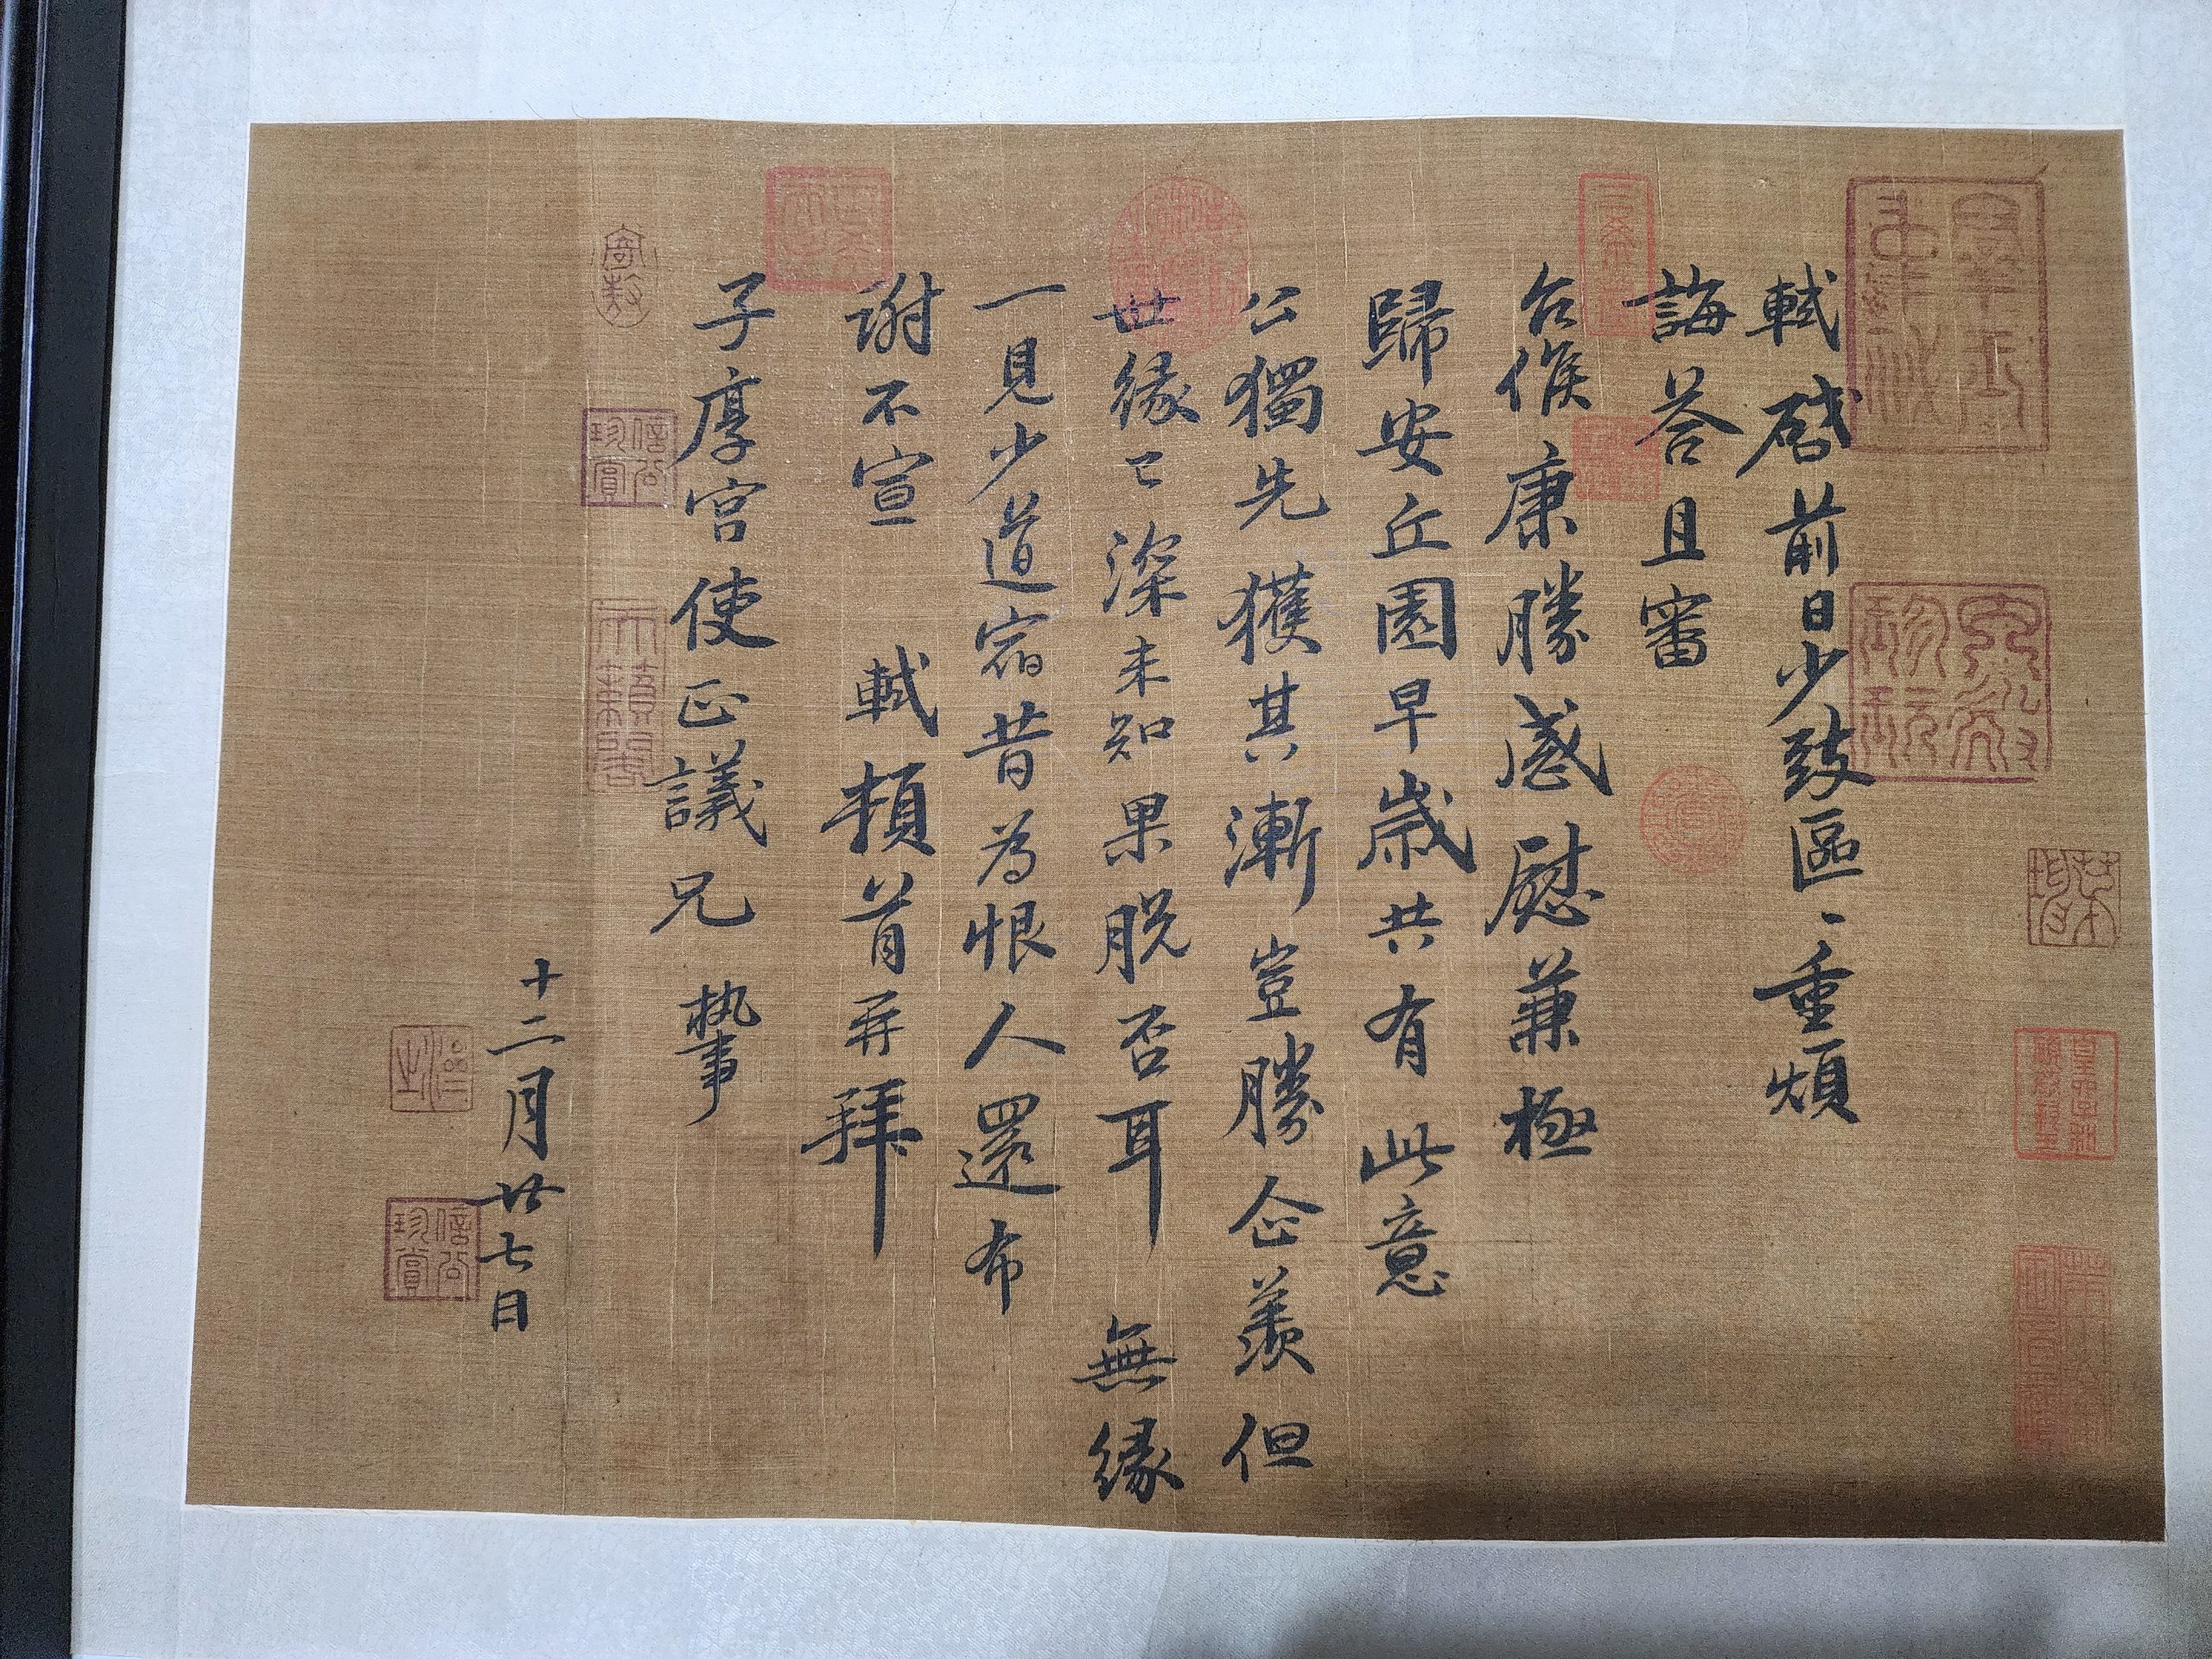 軾啓前日少致區〻重煩
誨荅且審
台候康勝感慰兼極
歸安丘園早歲共有此意
公獨先獲其漸豈勝企羨但
世緣已深未知果脫否耳無緣
一見少道宿昔為恨人還布
謝不宣 軾頓首再拜
子厚宮使正議兄執事
十二月廿七日
信公珍賞
信公珍賞